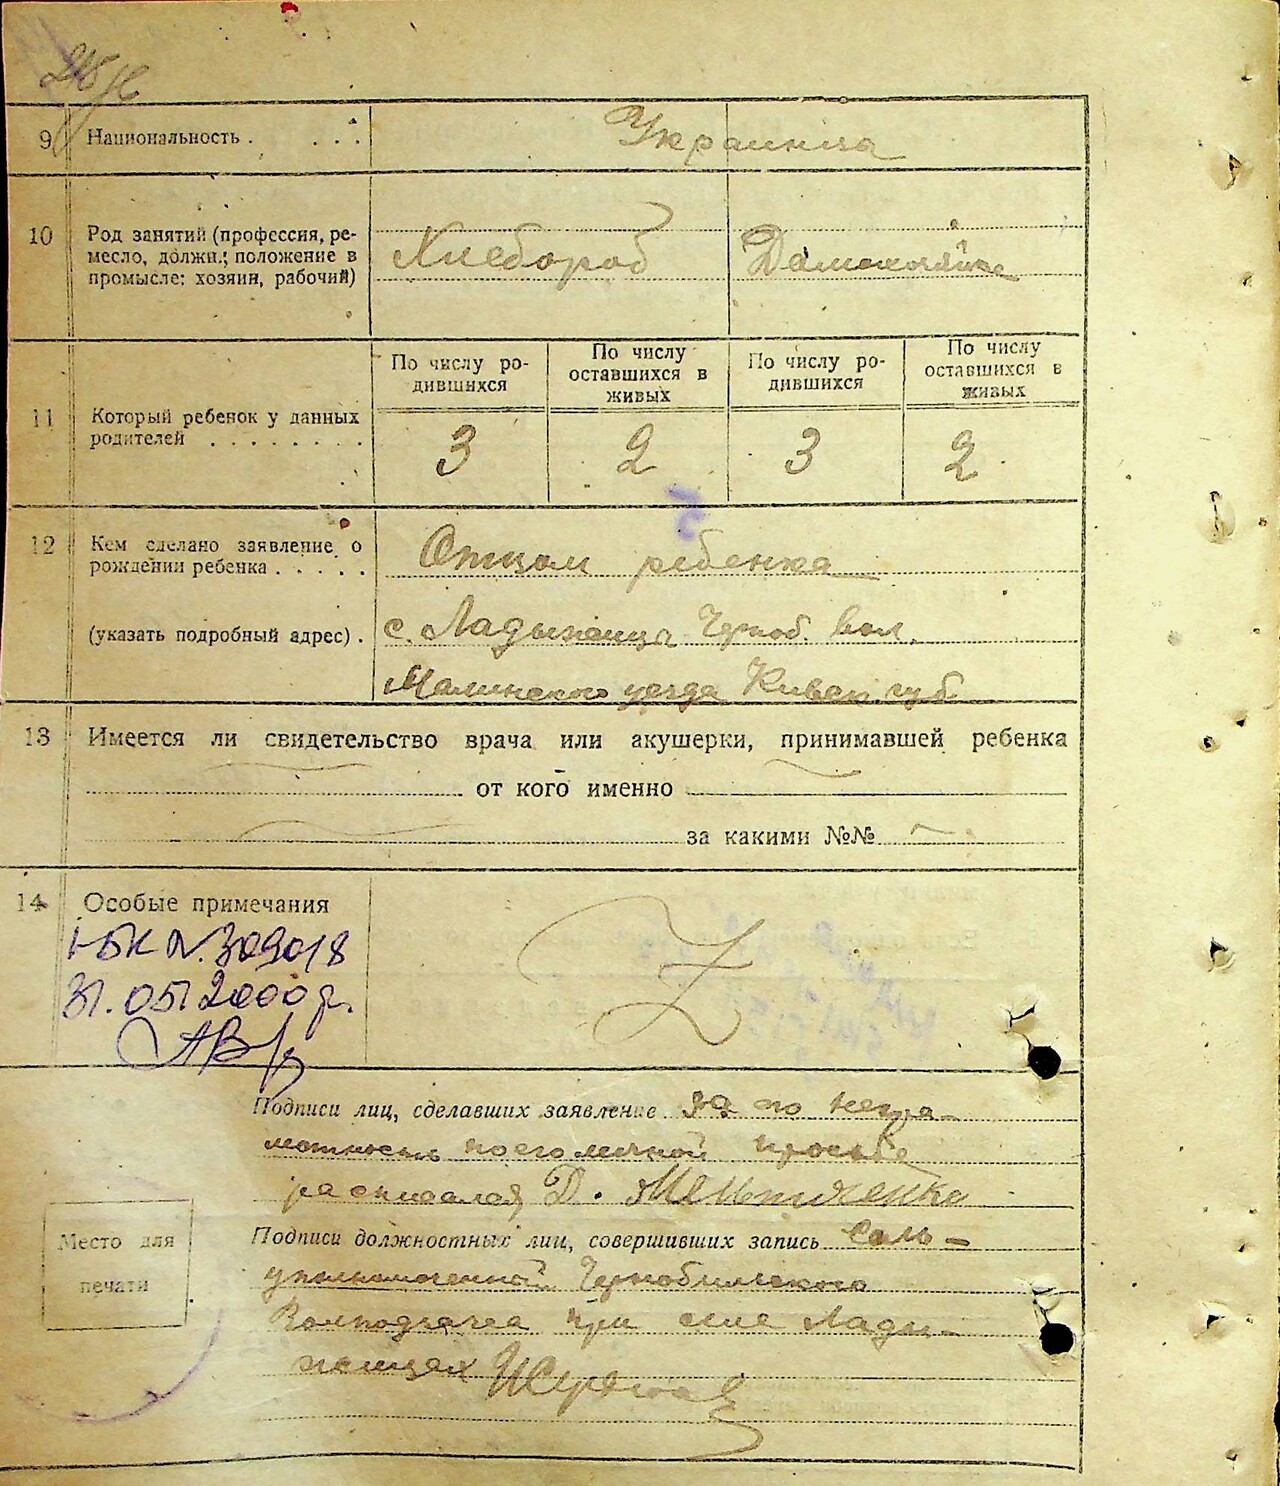 9 Национальность . . . . Украинца
10 Род занятий (профессия, ре-
месло, должн.; положение в
промысле: хозяин, рабочий)
Хлебороб Домохозяйка
По числу ро-
дившихся
По числу
оставшихся в
живых
По числу ро-
дившихся
По числу
оставшихся в
живых
11 Который ребенок у данных
родителей . . . . . . . .
3 2 3 2
5
12 Кем сделано заявление о
рождении ребенка . . . . .
Отцом ребенка
(указать подробный адрес) . с. Ладыжичи Черноб. вол.
Малинского уезда Киевск. губ.
13 Имеется ли свидетельство врача или акушерки, принимавшей ребенка
от кого именно
за какими №№
14 Особые примечания
I-БК N. 309018
31.05.2000р.
Подписи лиц, сделавших заявление за его негра-
мотностью по его личной просьбе
расписался Д.
Подписи должностных лиц, совершивших запись Сель-
уполномоченный Чернобильского
Волподзагса при селе Лады-
жицах
Место для
печати